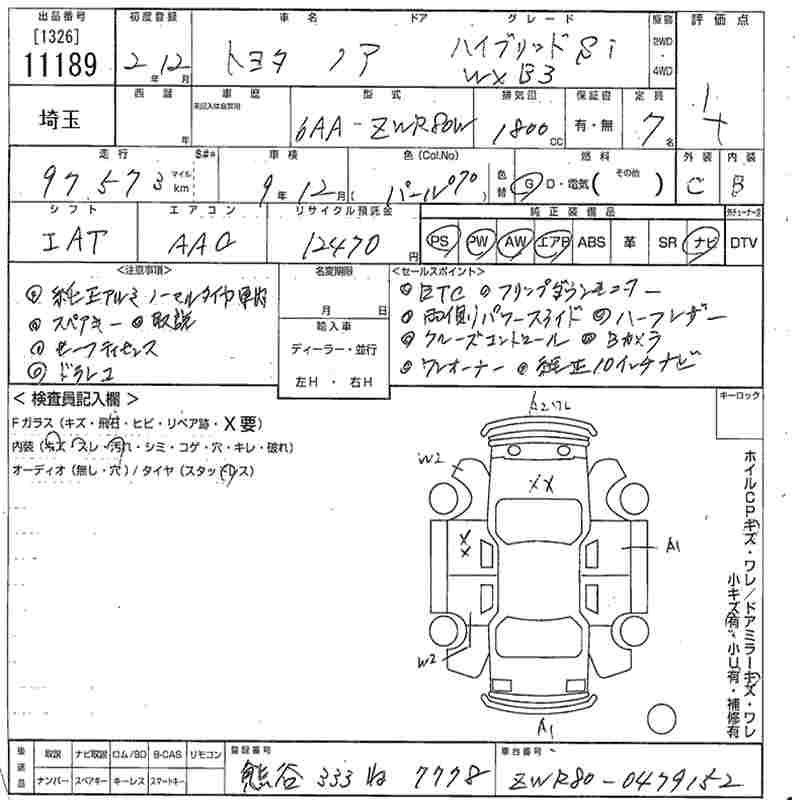 出品番号 初度登録 車名 ドア グレード 原動 評価点
[1326]
11189 2年 12月 トヨタ ノア ハイブリッド Si
WXB3
2WD・4WD
4
埼玉 西暦 年 車歴 型式 排気量 保証書 定員
6AA-ZWR80W 1800cc 有・無 7名
走行 S#* 車検 色(Col.No) 色替 燃料 外装 内装
97573 マイル km 9年12月( パール070) G D・電気( その他 ) C B
シフト エアコン リサイクル預託金 純正装備品
IAT AAC 12470円 PS PW AW エアB ABS 革 SR ナビ DTV
<注意事項> 名変期限 <セールスポイント>
純正アルミ ノーマルタイヤ車内
スペアキー 取説
セーフティセンス
ドラレコ
月 日
輸入車
ディーラー・並行
左H ・ 右H
ETC フリップダウンモニター
両側パワースライド ハーフレザー
クルーズコントロール Bカメラ
ワンオーナー 純正10インチナビ
< 検査員記入欄 > キーロック
Fガラス (キズ・飛石・ヒビ・リペア跡・X要)
内装 (キズ・スレ・汚れ・シミ・コゲ・穴・キレ・破れ)
オーディオ (無し・穴) / タイヤ (スタッドレス)
A2ワレ
W2
XX
XX
A1
W2
A1
ホイルCPキズ・ワレ/ドアミラーキズ・ワレ
小キズ有・小U有・補修有
後送品 取説 ナビ取説 ロム/SD B-CAS リモコン 登録番号 車台番号
ナンバー スペアキー キーレス スマートキー 熊谷 333 ね 7778 ZWR80-0479152